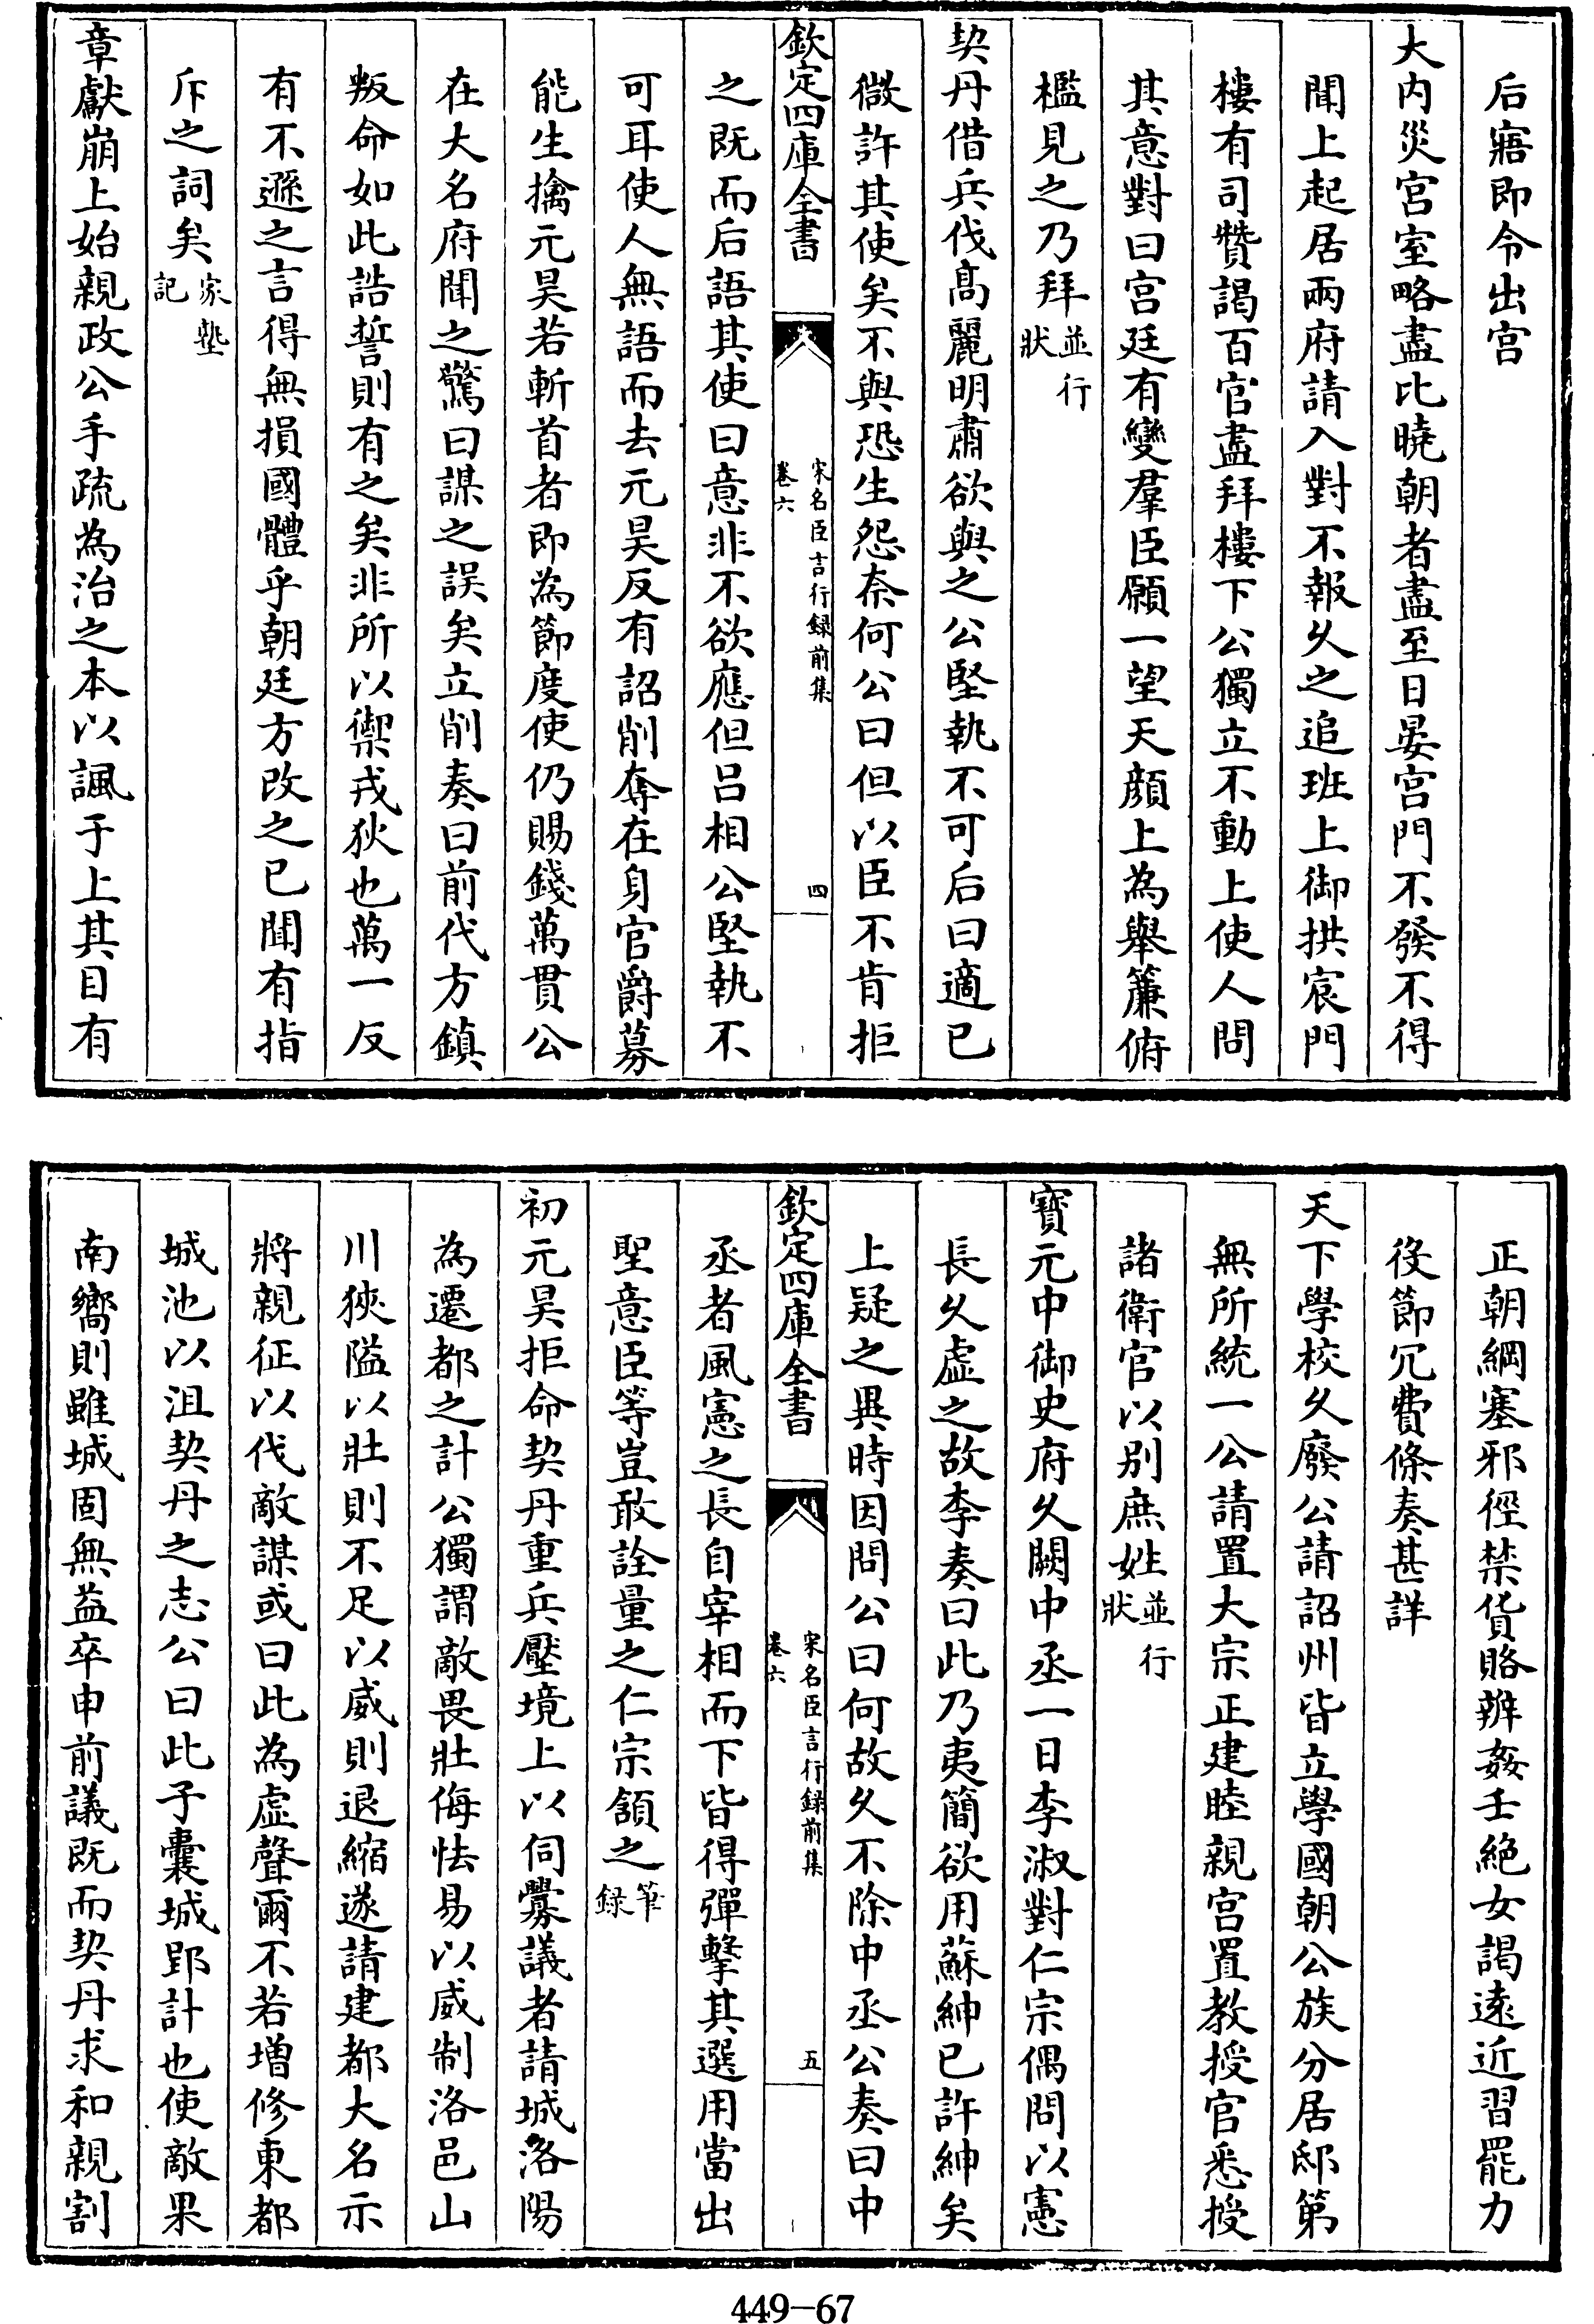 后寤即令出宫
大内災宫室略盡比曉朝者盡至日晏宫門不發不得
聞上起居兩府請入對不報乆之追班上御拱宸門
樓有司贊謁百官盡拜樓下公獨立不動上使人問
其意對曰宫廷有變羣臣願一望天顔上為舉簾俯
檻見之乃拜並行狀
契丹借兵伐髙麗明肅欲與之公堅執不可后曰適已
微許其使矣不與恐生怨奈何公曰但以臣不肯拒
欽定四庫全書
宋名臣言行録前集
卷六
四
之既而后語其使曰意非不欲應但吕相公堅執不
可耳使人無語而去元昊反有詔削奪在身官爵募
能生擒元昊若斬首者即為節度使仍賜錢萬貫公
在大名府聞之驚曰謀之誤矣立削奏曰前代方鎮
叛命如此誥誓則有之矣非所以禦戎狄也萬一反
有不遜之言得無損國體乎朝廷方改之已聞有指
斥之詞矣家塾記
章獻崩上始親政公手疏為治之本以諷于上其目有
正朝綱塞邪徑禁貨賂辨姦壬絶女謁逺近習罷力
役節冗費條奏甚詳
天下學校乆廢公請詔州皆立學國朝公族分居邸第
無所統一公請置大宗正建睦親宫置教授官悉授
諸衛官以别庶姓並行狀
寳元中御史府乆闕中丞一日李淑對仁宗偶問以憲
長乆虚之故李奏曰此乃夷簡欲用蘇紳已許紳矣
上疑之異時因問公曰何故乆不除中丞公奏曰中
欽定四庫全書
宋名臣言行録前集
卷六
五
丞者風憲之長自宰相而下皆得彈擊其選用當出
聖意臣等豈敢詮量之仁宗頷之筆録
初元昊拒命契丹重兵壓境上以伺釁議者請城洛陽
為遷都之計公獨謂敵畏壯侮怯易以威制洛邑山
川狹隘以壯則不足以威則退縮遂請建都大名示
將親征以伐敵謀或曰此為虚聲爾不若增修東都
城池以沮契丹之志公曰此子囊城郢計也使敵果
南嚮則雖城固無益卒申前議既而契丹求和親割
449-67